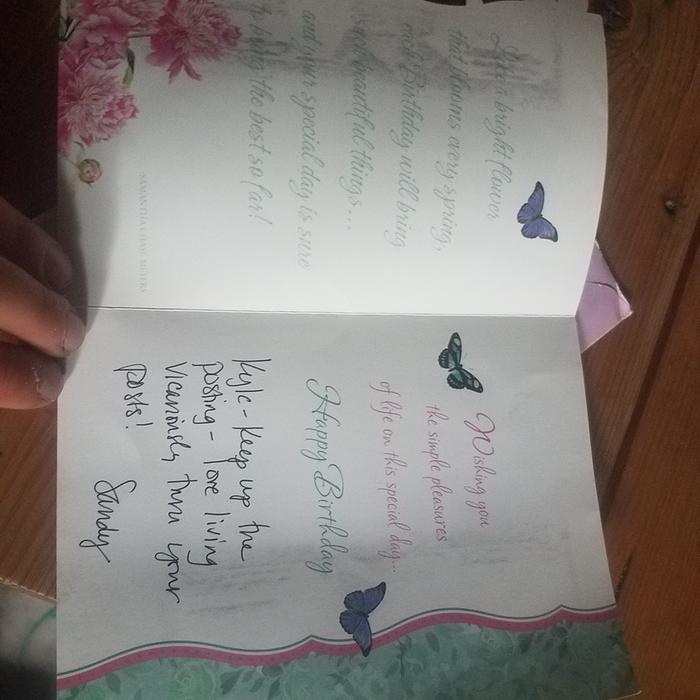 Like a bright flower
that blooms every spring,
each Birthday will bring
its own beautiful things...
and your special day is sure
to bring the best so far!
SAMANTHA CHASE MEYERS
Wishing you
the simple pleasures
of life on this special day...
Happy Birthday
Kyle - Keep up the
posting - love living
vicariously thru your
posts!
Sandy